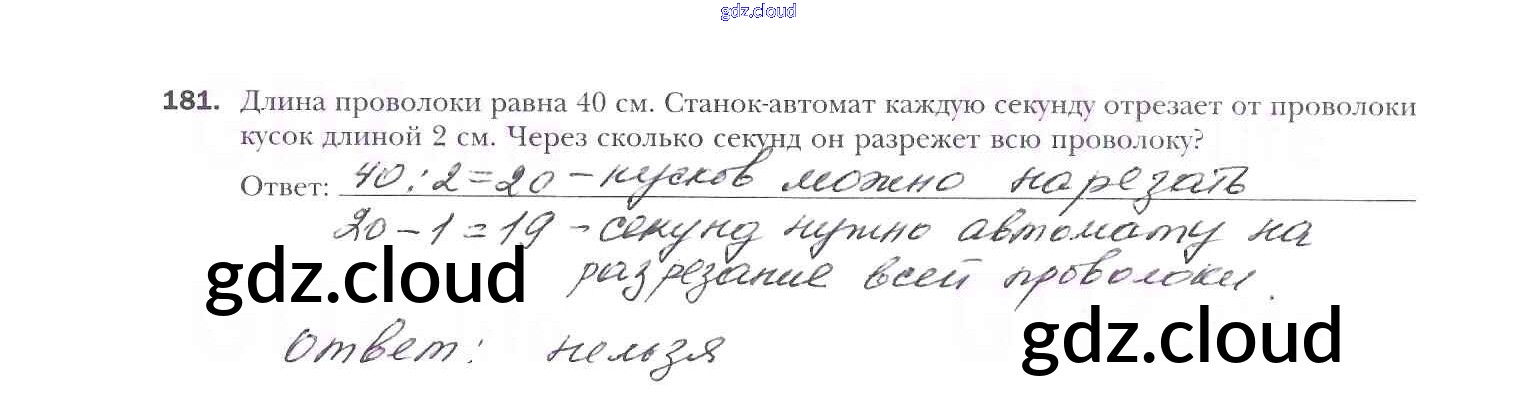 gdz.cloud
181. Длина проволоки равна 40 см. Станок-автомат каждую секунду отрезает от проволоки
кусок длиной 2 см. Через сколько секунд он разрежет всю проволоку?
Ответ: 40:2=20 – кусков можно нарезать
20–1=19 – секунд нужно автомату на
gdz.cloud разрезание всей проволоки.
Ответ: нельзя
gdz.cloud